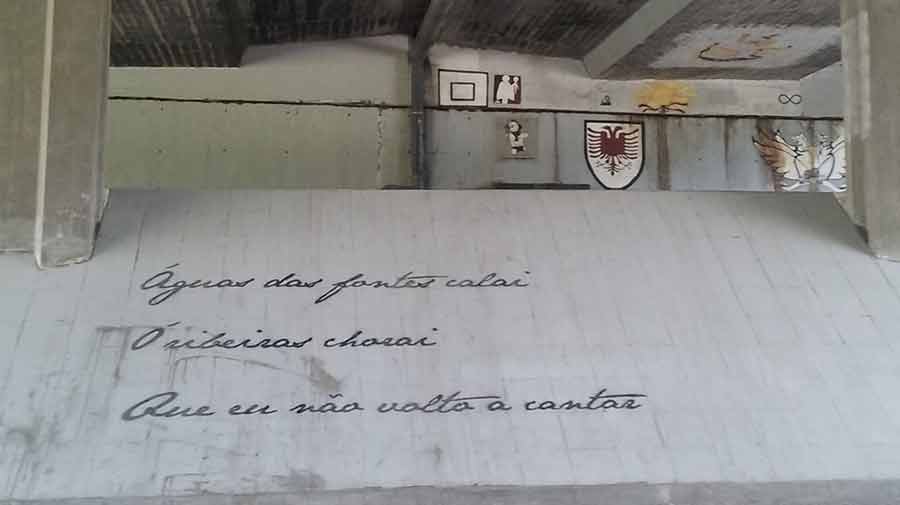 Águas das fontes calai
Ó ribeiras chorai
Que eu não volto a cantar